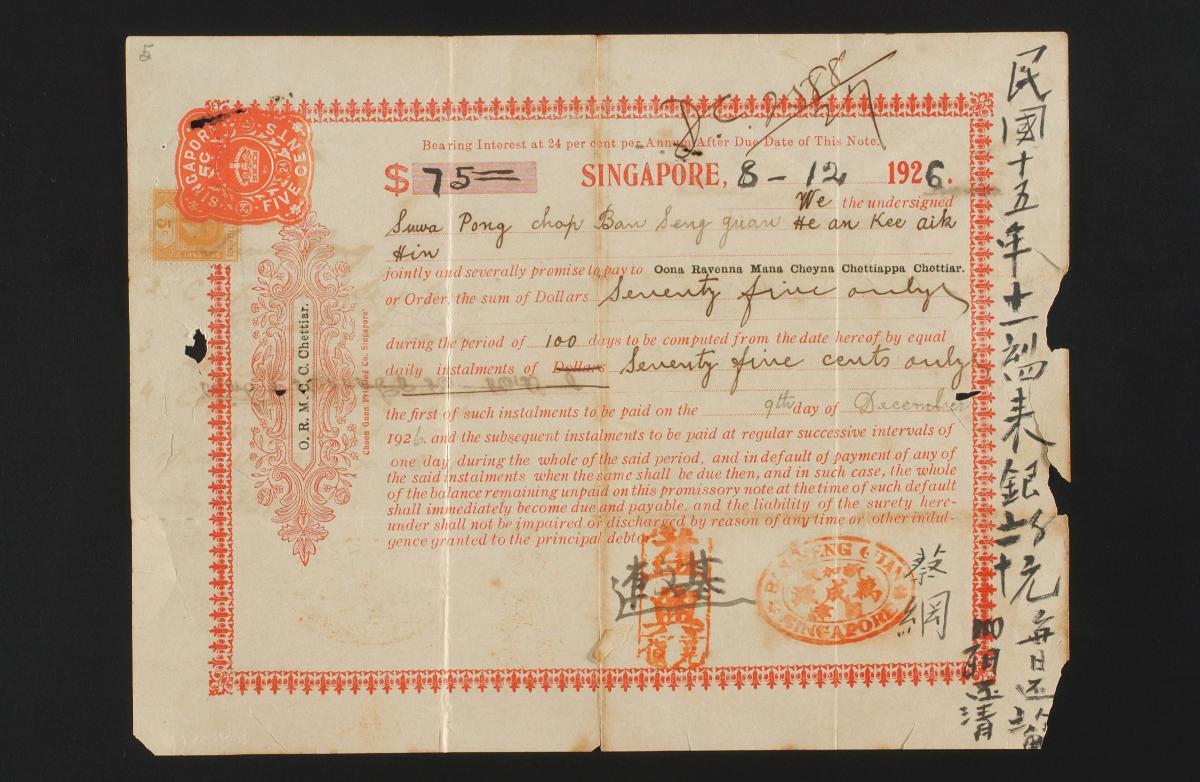 5
D.C. 2188/27
SINGAPORE
5C
FIVE CENTS
5c
Bearing Interest at 24 per cent per Annum After Due Date of This Note.
$ 75= SINGAPORE, 8 - 12 1926.
We the undersigned
Suwa Pong chop Ban Seng guan He an Kee aik
Hin
jointly and severally promise to pay to Oona Rayenna Mana Cheyna Chettiappa Chettiar.
or Order, the sum of Dollars Seventy five only
during the period of 100 days to be computed from the date hereof by equal
daily instalments of Dollars Seventy five cents only
the first of such instalments to be paid on the 9th day of December
1926. and the subsequent instalments to be paid at regular successive intervals of
one day during the whole of the said period, and in default of payment of any of
the said instalments when the same shall be due then, and in such case, the whole
of the balance remaining unpaid on this promissory note at the time of such default
shall immediately become due and payable, and the liability of the surety here-
under shall not be impaired or discharged by reason of any time or other indul-
gence granted to the principal debto
O. R. M. C. C. Chettiar.
Choon Guan Printing Co. Singapore
BAN SENG GUAN
萬成
SINGAPORE
興
蔡網
民國十五年十一
銀
元每日还
还清